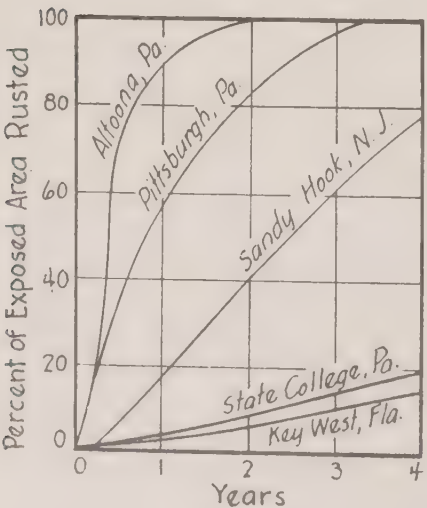 Percent of Exposed Area Rusted
100
80
60
40
20
0
Altoona, Pa.
Pittsburgh, Pa.
Sandy Hook, N.J.
State College, Pa.
Key West, Fla.
0
1
2
3
4
Years